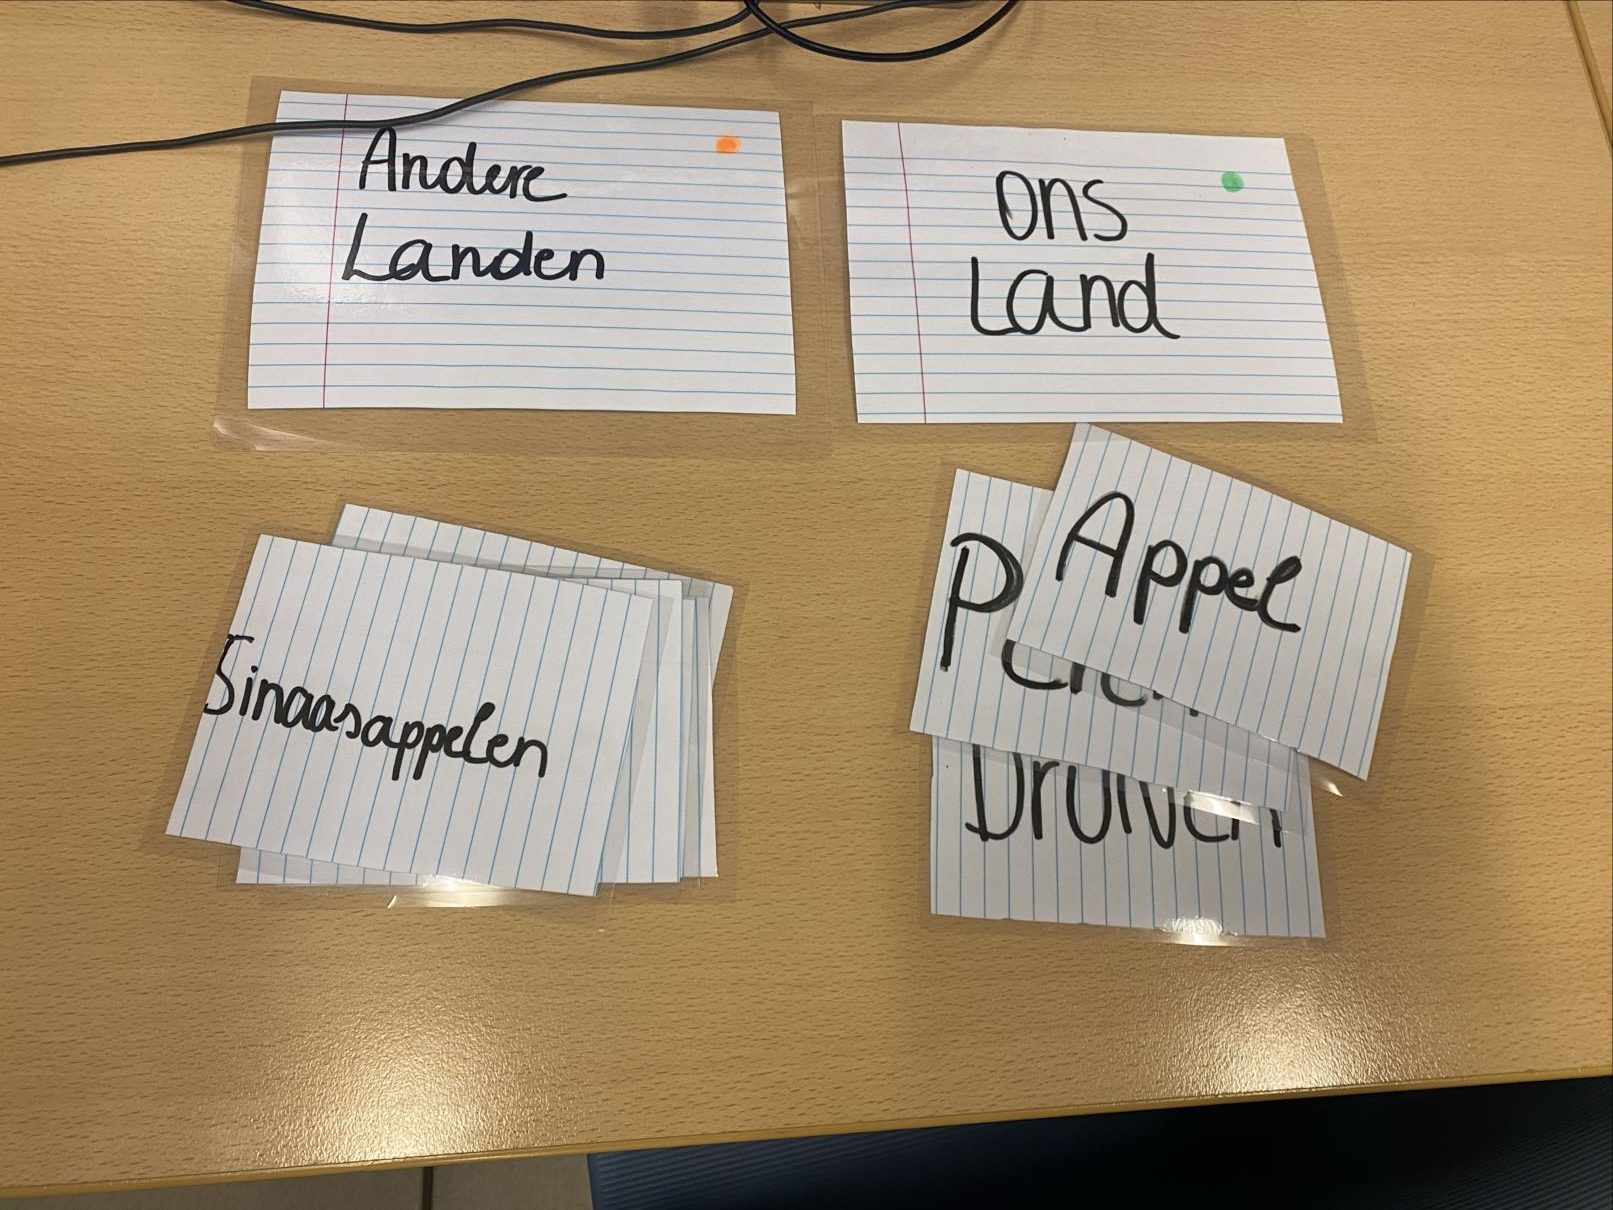 Andere
Landen
Ons
Land
Sinaasappelen
Appel
Druiven